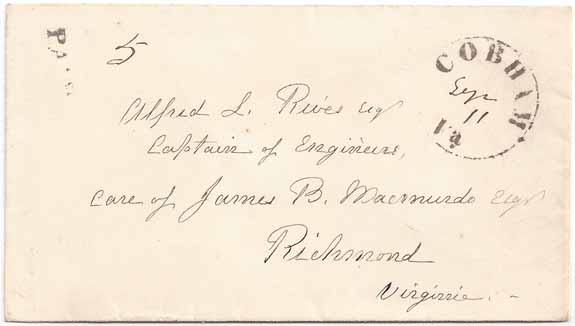 PAID
5
COBHAM
Sep
11
Va
Alfred L. Rives esqr
Captain of Engineers,
care of James B. Macmurdo Esqr
Richmond
Virginia. -